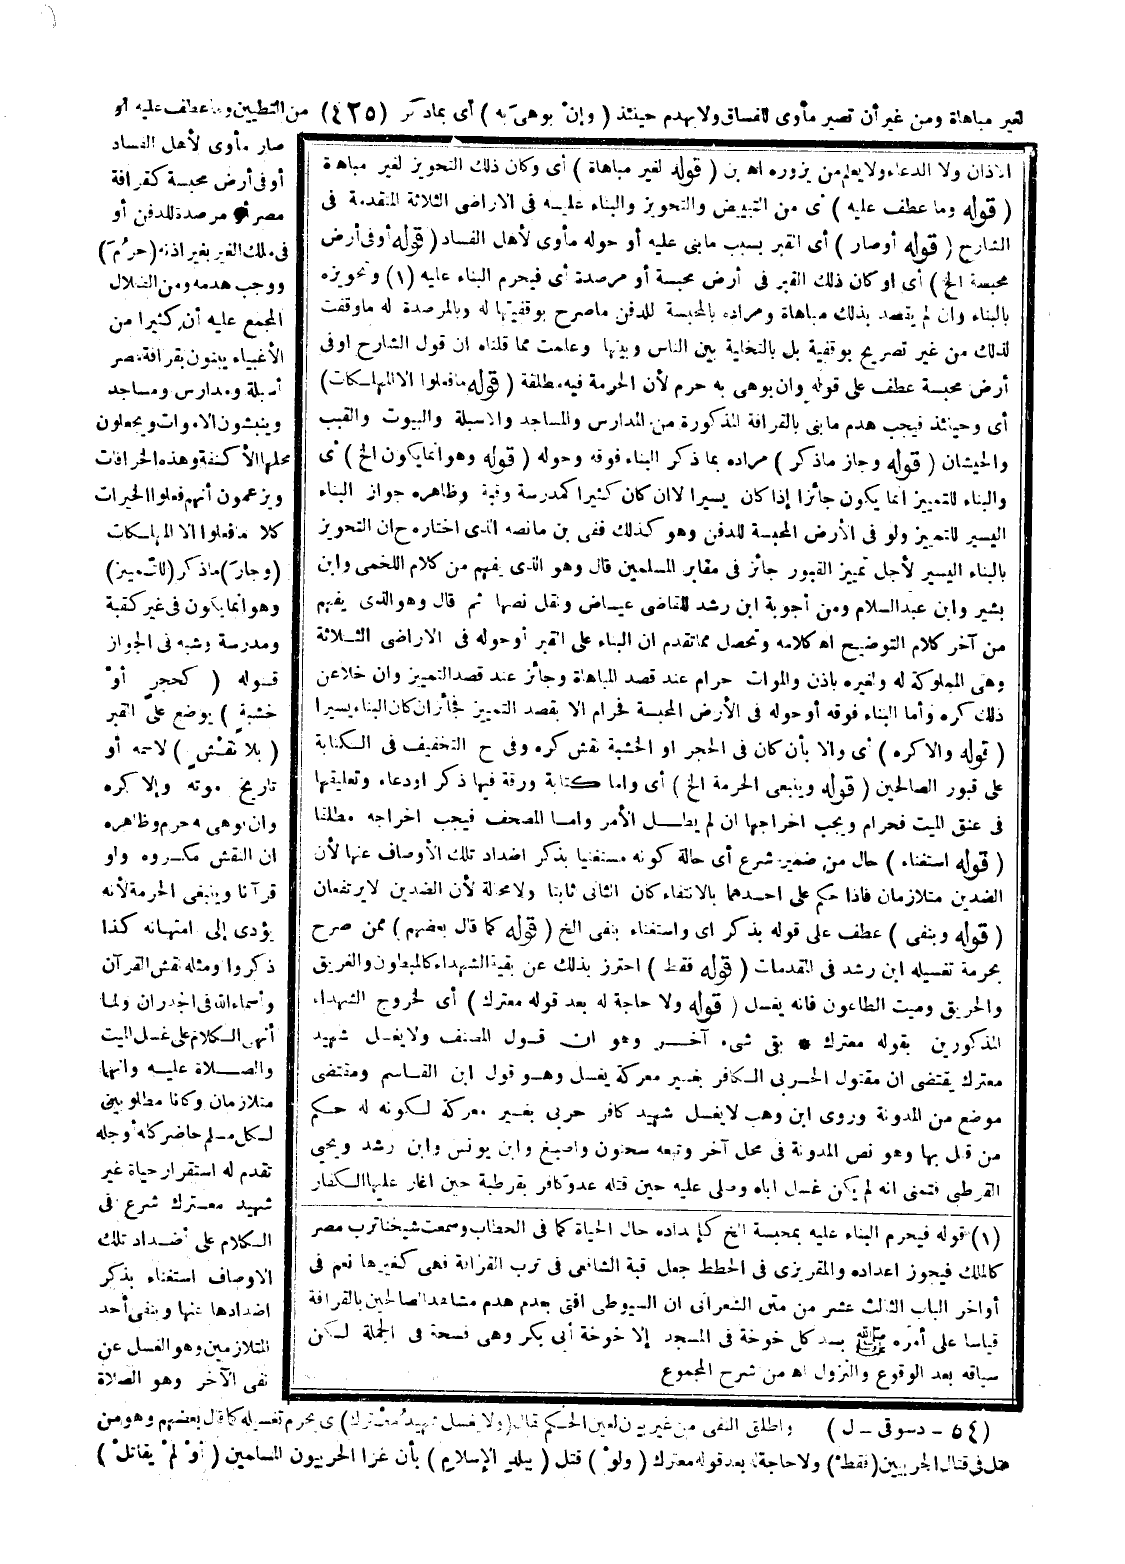 لغير مباهاة ومن غير أن تصير مأوى للفساق ولا يهدم حينئذ ( وإنْ بوهىَ به ) أى بماذكر (٤٢٥) من التطيين وما عطف عليه أو
صار مأوى لأهل الفساد
أو فى أرض محبسة كقرافة
مصر أو مرصدة للدفن أو
فى ملك الغير بغير اذنه (حرُمَ)
ووجب هدمه ومن الضلال
المجمع عليه أن كثيرا من
الأغبياء يبنون بقرافة مصر
أسبلة ومدارس ومساجد
وينبشون الاموات ويجعلون
محلها الأكنفة وهذه الخرافات
ويزعمون أنهم فعلوا الخيرات
كلا ما فعلوا الا المهلكات
(وجازَ) ماذكر (للتمييز)
وهو انما يكون فى غير كقبة
ومدرسة وشبه فى الجواز
قوله ( كحجرٍ أوْ
خشبةٍ ) يوضع على القبر
( بلا نقشٍ ) لاسمه أو
تاريخ موته وإلا كره
وان بوهى به حرم وظاهره
ان النقش مكروه ولو
قرآنا وينبغى الحرمة لأنه
يؤدى إلى امتهانه كذا
ذكروا ومثله نقش القرآن
وأسماء الله فى الجدران ولما
أنهى الكلام على غسل الميت
والصلاة عليه وانهما
متلازمان وكانا مطلوبين
لكل مسلم حاضر كله أو جله
تقدم له استقرار حياة غير
شهيد معترك شرع فى
الكلام على أضداد تلك
الاوصاف استغناء بذكر
اضدادها عنها وبنفى أحد
المتلازمين وهو الغسل عن
نفى الآخر وهو الصلاة
الاذان ولا الدعاء ولا يعلم من يزوره اه بن ( قوله لغير مباهاة ) أى وكان ذلك التحويز لغير مباهاة
( قوله وما عطف عليه ) أى من التبييض والتحويز والبناء عليه فى الاراضى الثلاثة المتقدمة فى
الشارح ( قوله أوصار ) أى القبر بسبب مابنى عليه أو حوله مأوى لأهل الفساد ( قوله أوفى أرض
محبسة الخ ) أى او كان ذلك القبر فى أرض محبسة أو مرصدة أى فيحرم البناء عليه (١) وتحويزه
بالبناء وان لم يقصد بذلك مباهاة ومراده بالمحبسة للدفن ماصرح بوقفيتها له وبالمرصدة له ماوقفت
لذلك من غير تصريح بوقفية بل بالتخلية بين الناس وبينها وعلمت مما قلناه ان قول الشارح اوفى
أرض محبسة عطف على قوله وان بوهى به حرم لأن الحرمة فيه مطلقة ( قوله مافعلوا الا المهلكات)
أى وحينئذ فيجب هدم مابنى بالقرافة المذكورة من المدارس والمساجد والاسبلة والبيوت والقبب
والحيشان ( قوله وجاز ماذكر ) مراده بما ذكر البناء فوقه وحوله ( قوله وهو انما يكون الخ ) أى
والبناء للتمييز انما يكون جائزا إذا كان يسيرا لا ان كان كثيرا كمدرسة وقبة وظاهره جواز البناء
اليسير للتمييز ولو فى الأرض المحبسة للدفن وهو كذلك ففى بن مانصه الذى اختاره ح ان التحويز
بالبناء اليسير لأجل تمييز القبور جائز فى مقابر المسلمين قال وهو الذى يفهم من كلام اللخمى وابن
بشير وابن عبدالسلام ومن أجوبة ابن رشد للقاضى عياض ونقل نصها ثم قال وهو الذى يفهم
من آخر كلام التوضيح اه كلامه وتحصل مما تقدم ان البناء على القبر أو حوله فى الاراضى الثلاثة
وهى المملوكة له ولغيره باذن والموات حرام عند قصد المباهاة وجائز عند قصد التمييز وان خلا عن
ذلك كره وأما البناء فوقه أو حوله فى الأرض المحبسة فحرام الا بقصد التمييز فجائز ان كان البناء يسيرا
( قوله والا كره ) أى والا بأن كان فى الحجر او الخشبة نقش كره وفى ح التخفيف فى الكتابة
على قبور الصالحين ( قوله وينبغى الحرمة الخ ) أى واما كتابة ورقة فيها ذكر اودعاء وتعليقها
فى عنق الميت فحرام ويجب اخراجها ان لم يطل الأمر واما المصحف فيجب اخراجه مطلقا
( قوله استغناء ) حال من ضمير شرع أى حالة كونه مستغنيا بذكر اضداد تلك الأوصاف عنها لأن
الضدين متلازمان فاذا حكم على احدهما بالانتفاء كان الثانى ثابتا ولا محالة لأن الضدين لا يرتفعان
( قوله وبنفى ) عطف على قوله بذكر اى واستغناء بنفى الخ ( قوله كما قال بعضهم ) ممن صرح
بحرمة تغسيله ابن رشد فى المقدمات ( قوله فقط ) احترز بذلك عن بقية الشهداء كالمبطون والغريق
والحريق وميت الطاعون فانه يغسل ( قوله ولا حاجة له بعد قوله معترك ) أى لخروج الشهداء
المذكورين بقوله معترك * بقى شىء آخر وهو ان قول المصنف ولا يغسل شهيد
معترك يقتضى ان مقتول الحربى الكافر بغير معركة يغسل وهو قول ابن القاسم ومقتضى
موضع من المدونة وروى ابن وهب لا يغسل شهيد كافر حربى بغير معركة لكونه له حكم
من قتل بها وهو نص المدونة فى محل آخر وتبعه سحنون واصبغ وابن يونس وابن رشد ويحيى
القرطبى فتمنى انه لم يكن غسل اباه وصلى عليه حين قتله عدو كافر بقرطبة حين اغار عليها الكفار
(١) قوله فيحرم البناء عليه بمحبسة الخ كإعداده حال الحياة كما فى الحطاب وسمعت شيخنا ترب مصر
كالملك فيجوز اعداده والمقريزى فى الخطط جعل قبة الشافعى فى ترب القرافة فهى كغيرها نعم فى
أواخر الباب الثالث عشر من متن الشعرانى ان السيوطى افتى بعدم هدم مشاهد الصالحين بالقرافة
قياسا على أمره ﷺ بسد كل خوخة فى المسجد إلا خوخة أبى بكر وهى فسحة فى الجملة لكن
سياقه بعد الوقوع والنزول اه من شرح المجموع
(٥٤ - دسوقى - ل) واطلق النفى من غير بيان لعين الحكم فقال (ولا يغسل شهيدُ معتركٍ) أى يحرم تغسيله كما قال بعضهم وهو من
قتل فى قتال الحربيين (فقطْ) ولا حاجة له بعد قوله معترك ( ولوْ ) قتل ( ببلدِ الإسلامِ ) بأن غزا الحربيون المسلمين ( أوْ لمْ يقاتلْ )